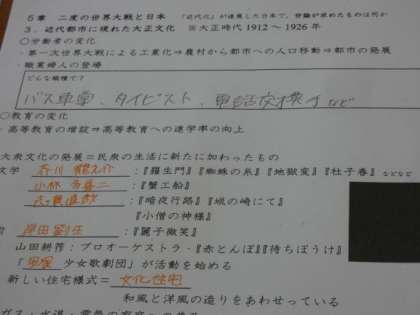 5章 二度の世界大戦と日本 「近代化」が進展した日本で、世論が求めたものは何か
3．近代都市に現れた大正文化 ※大正時代 1912～1926年
○労働者の変化
・第一次世界大戦による工業化⇒農村から都市への人口移動⇒都市の発展
・職業婦人の登場
どんな職種で？
バス車掌、タイピスト、電話交換手など
○教育の変化
・高等教育の増設⇒高等教育への進学率の向上
大衆文化の発展＝民衆の生活に新たに加わったもの
文学 芥川龍之介 ：『羅生門』『蜘蛛の糸』『地獄変』『杜子春』などなど
小林多喜二 ：『蟹工船』
志賀直哉 ：『暗夜行路』『城の崎にて』
『小僧の神様』
岸田劉生 ：『麗子微笑』
山田耕筰：プロオーケストラ・『赤とんぼ』『待ちぼうけ』
『宝塚 少女歌劇団』が活動を始める
新しい住宅様式＝ 文化住宅
和風と洋風の造りをあわせている
ガス・水道・電気の家庭への普及